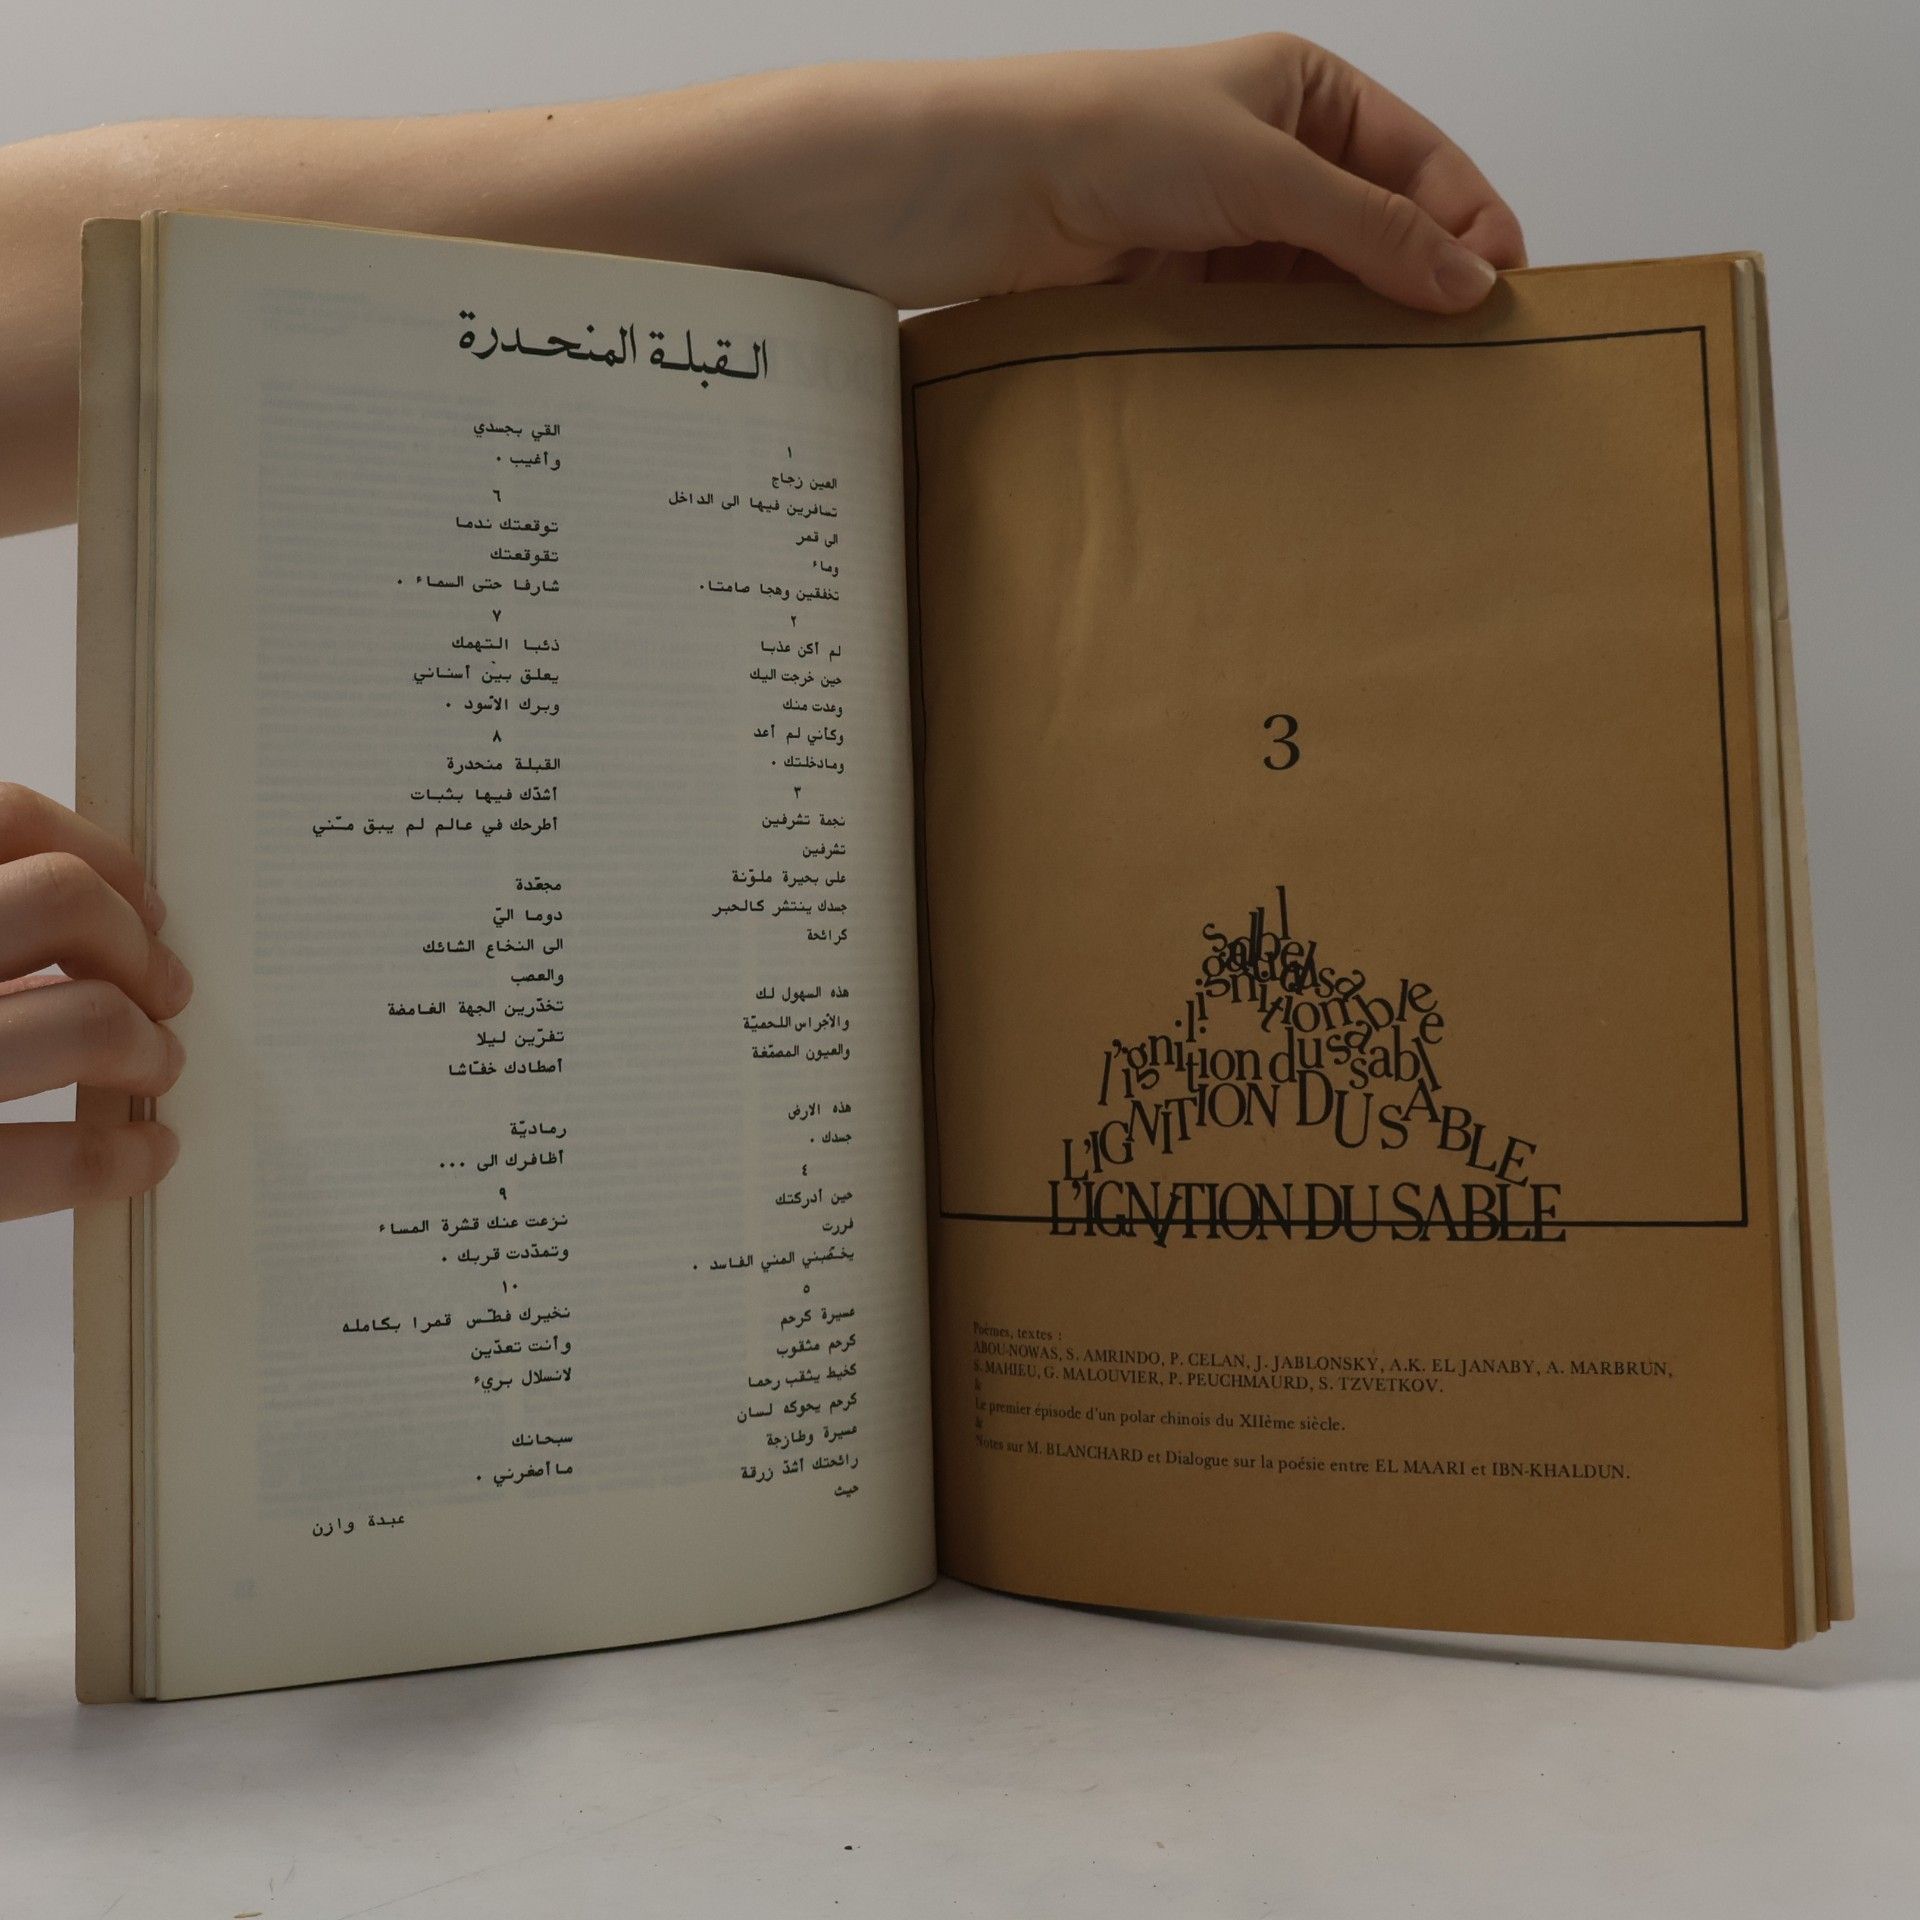 القبلة المنحدرة
١
العين زجاج
تسافرين فيها الى الداخل
الى قمر
وماء
تخفقين وهجا صامتا.
٢
لم أكن عذبا
حين خرجت اليك
وعدت منك
وكأني لم أعد
ومادخلتك .
٣
نجمة تشرفين
تشرفين
على بحيرة ملوّنة
جسدك ينتشر كالحبر
كرائحة
هذه السهول لك
والأجراس اللحميّة
والعيون المصمّغة
هذه الارض
جسدك .
٤
حين أدركتك
فررت
يخضّبني المني الفاسد .
٥
عسيرة كرحم
كرحم مثقوب
كخيط يثقب رحما
كرحم يحوكه لسان
عسيرة وطازجة
رائحتك أشدّ زرقة
حيث
القي بجسدي
وأغيب .
٦
توقعتك ندما
تقوقعتك
شارفا حتى السماء .
٧
ذئبا التهمك
يعلق بين أسناني
وبرك الأسود .
٨
القبلة منحدرة
أشدّك فيها بثبات
أطرحك في عالم لم يبق منّني
مجعّدة
دوما اليّ
الى النخاع الشائك
والعصب
تخدّرين الجهة الغامضة
تفرّين ليلا
أصطادك خفّاشا
رماديّة
أظافرك الى ...
٩
نزعت عنك قشرة المساء
وتمدّدت قربك .
١٠
نخيرك فطّس قمرا بكامله
وأنت تعدّين
لانسلال بريء
سبحانك
ماأصغرني .
عبدة وازن
3
l'ignition du sabl
L'IGNITION DU SABLE
L'IGNITION DU SABLE
Poèmes, textes :
ABOU-NOWAS, S. AMRINDO, P. CELAN, J. JABLONSKY, A.K. EL JANABY, A. MARBRUN,
S. MAHIEU, G. MALOUVIER, P. PEUCHMAURD, S. TZVETKOV.
&
Le premier épisode d'un polar chinois du XIIème siècle.
&
Notes sur M. BLANCHARD et Dialogue sur la poésie entre EL MAARI et IBN-KHALDUN.